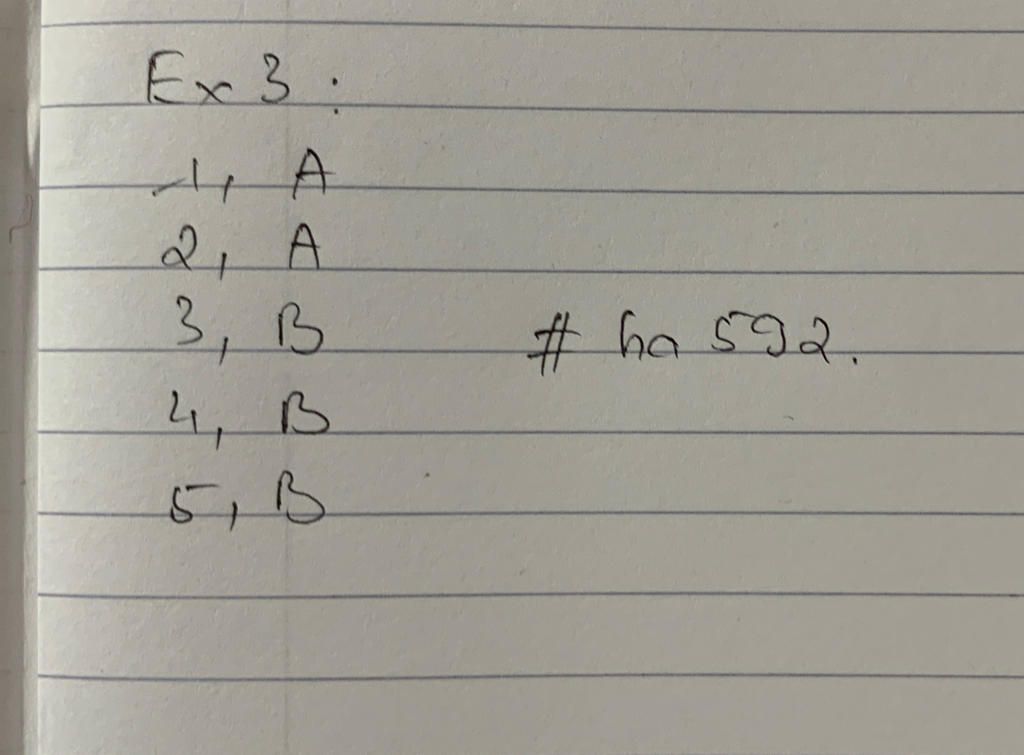 Ex 3 :
1, A
2, A
3, B # ha 592.
4, B
5, B